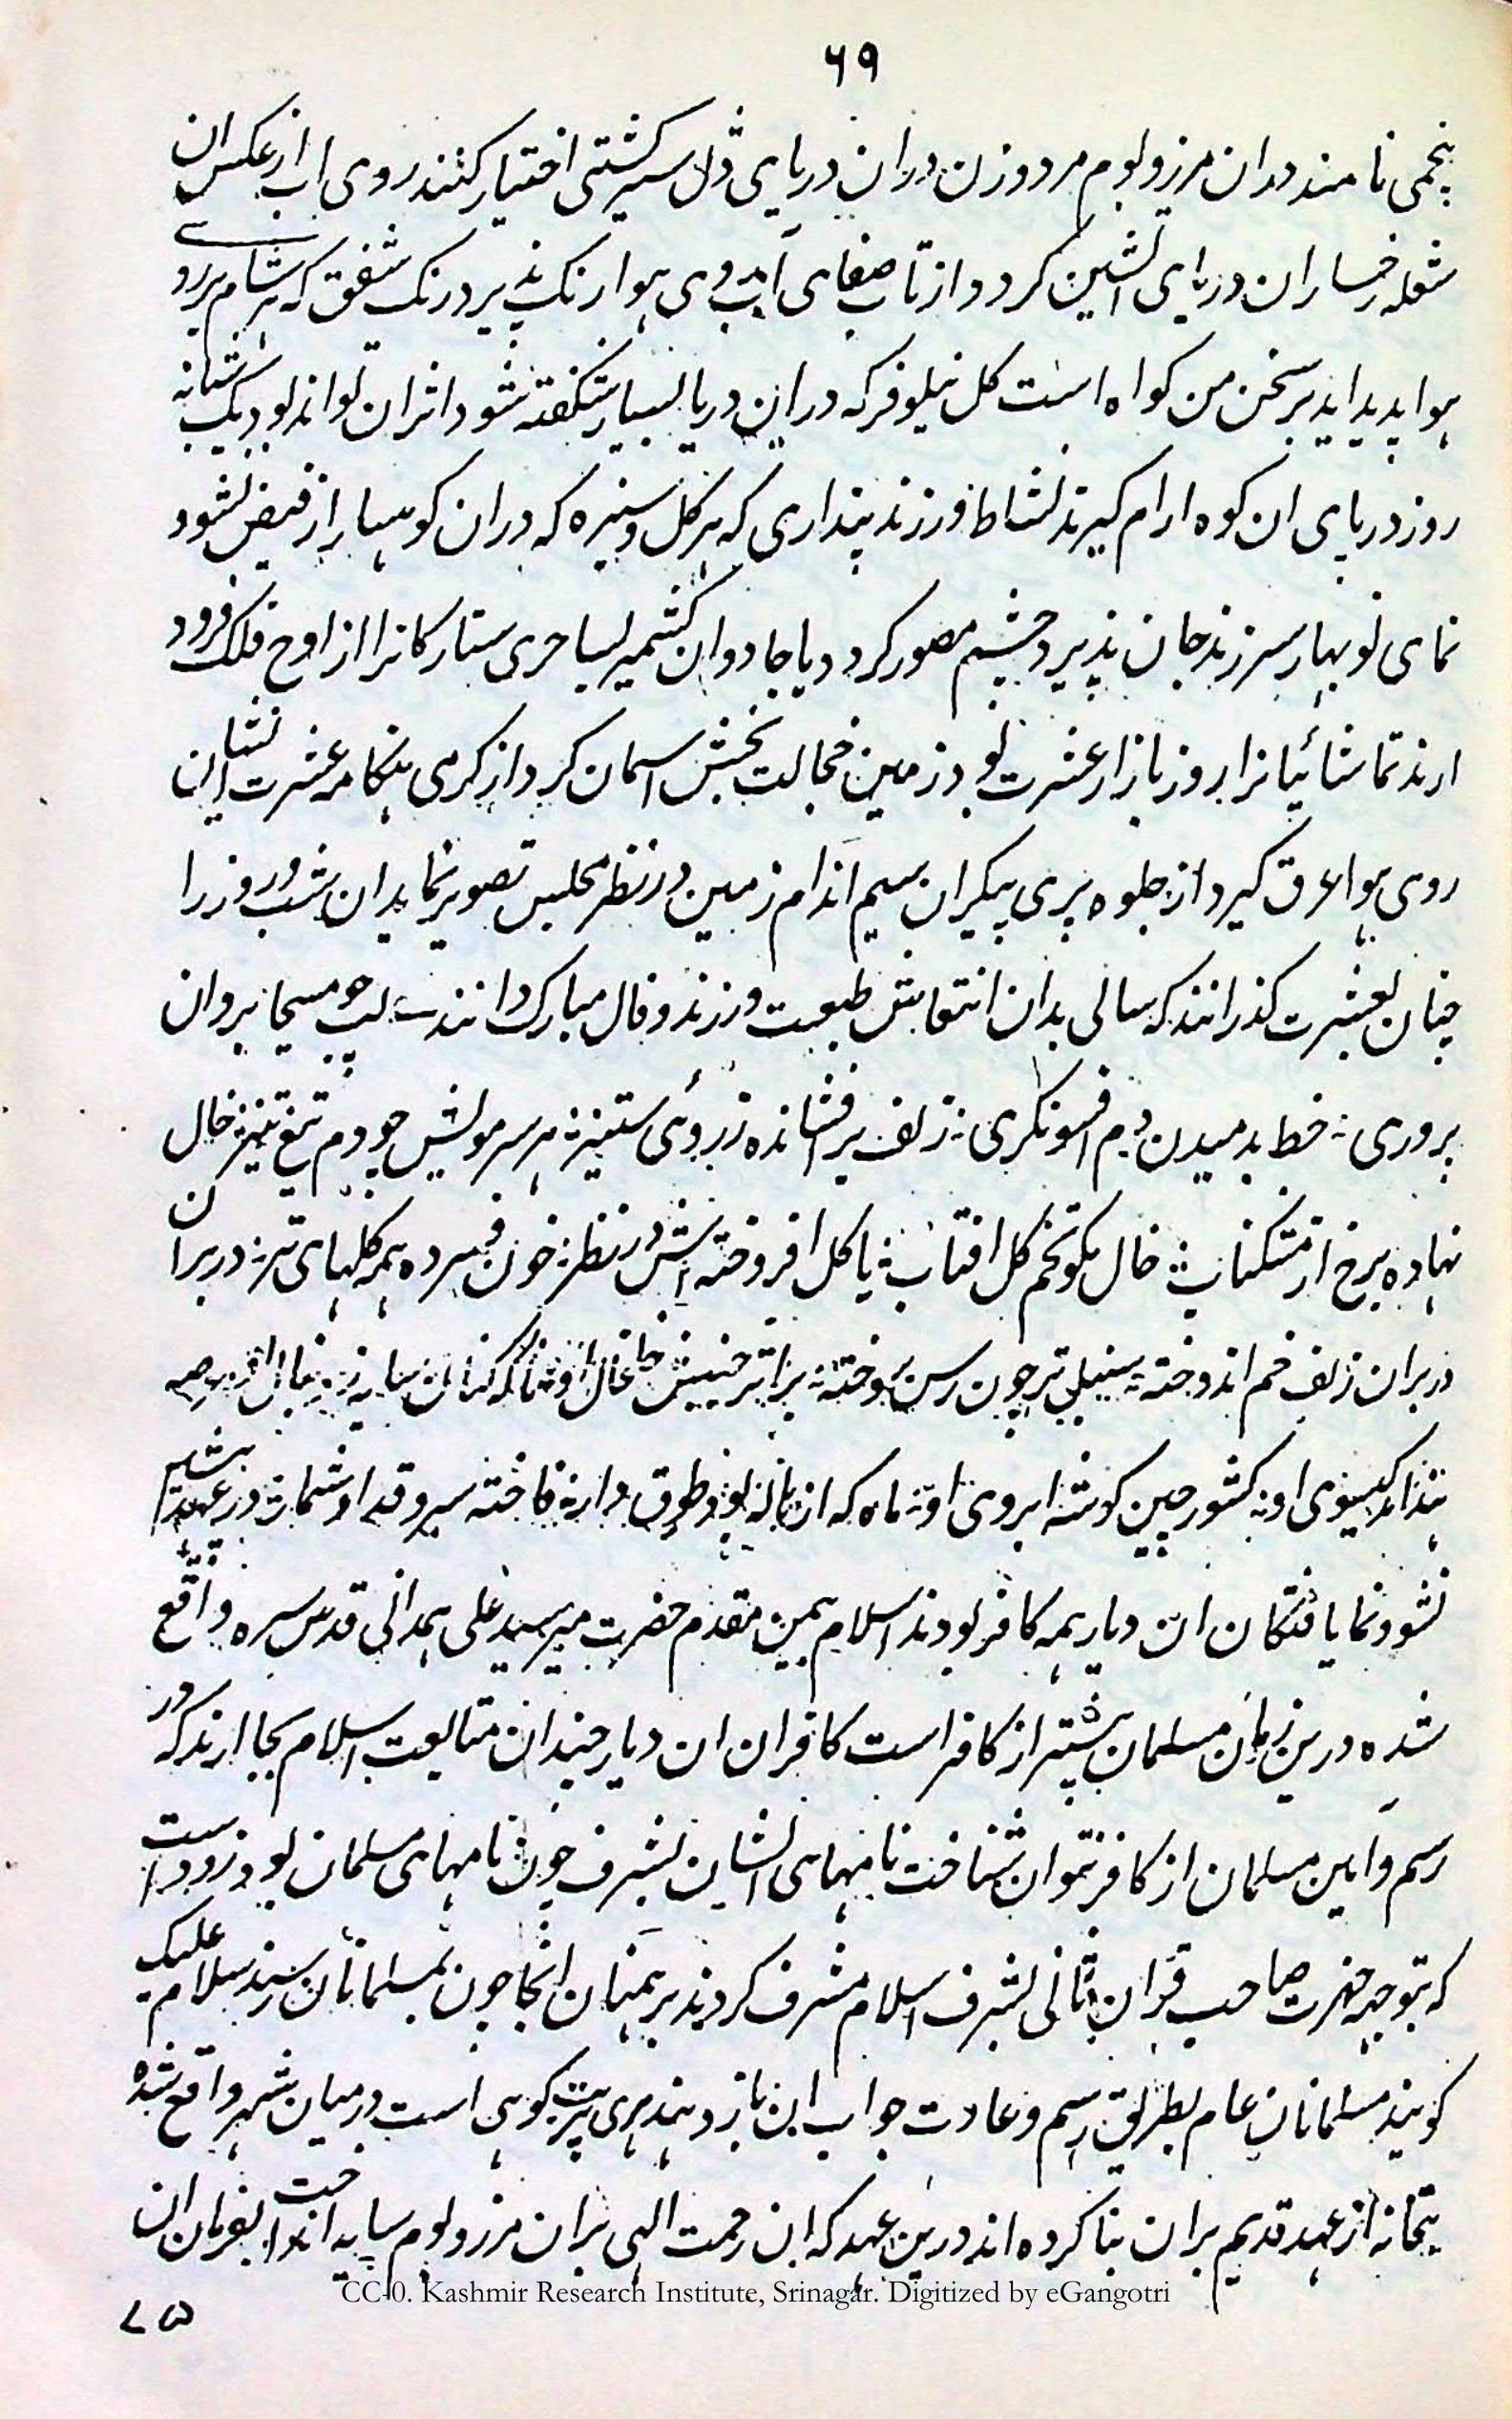 ۶۹
پنجمی نامند دران مرز و بوم مرد و زن دران دریای ڈل سیر کشتی اختیار کنند روی اب از عکس ان
شعله رخساران دریای اتشین کردد از تاب صفای آب روی هوا رنک پذیرد رنک شفق که هر شام بر روی
هوا پدید اید بر سخن من کواه است کل نیلوفر که دراین دریا بسیار شکفته شود اثر ان تواند بود یک شبانه
روز در پای ان کوه ارام کیرند نشاط ورزند پنداری که هر کل و سبزه که دران کوهسار از فیض نشو و
نمای نو بهار سر زند جان پذیرد چشم مصور کردد یا جادوان کشمیر بساحری ستارکانرا از اوج فلک فرود
ارند تماشائیانرا روز بازار عشرت بود زمین خجالت بخش اسمان کردد از کرمی هنکامه عشرت انسان
روی هوا عرق کیرد از جلوه پری پیکران سیم اندام زمین در نظر مجلس تصویر نماید ان شب و روز را
چنان بعشرت کذرانند که سالی بدان انتعاش طبیعت ورزند و فال مبارک دانند لب چو مسیحا بروان
پروری خط بدمیدن دم افسونکری زلف بر افشانده ز روی ستیز هر سر مویش چو دم تیغ تیز خال
نهاده برخ از مشکناب خال مکو تخم کل افتاب یا کل افروخته اتش در نظر خون فسرده همه کلهای تر در بران
در بران زلف خم اندوخته سنبلی تر چون رسن سوخته
کیسوی او کشور چین کوشه ابروی او ماه که از هاله بود طوق دار فاخته سرو قد او شمار در عهد پیشین
نشو و نما یافتکان ان دیار همه کافر بودند اسلام بیمن مقدم حضرت میر سید علی همدانی قدس سره واقع
شده درین زمان مسلمان بیشتر از کافر است کافران ان دیار چندان متابعت اسلام بجا ارند که در
رسم و آیین مسلمان از کافر نتوان شناخت نامهای ایشان بشرف چون نامهای مسلمان بود زود است
که بتوجه حضرت صاحب قران ثانی بشرف اسلام مشرف کردند برهمنان انجا چون بمسلمانان رسند سلام علیک
کویند مسلمانان عام بطریق رسم و عادت جواب ان باز دهند هری پربت کوهی است درمیان شهر واقع شده
بتخانه از عهد قدیم بران بنا کرده اند درین عهد که ان رحمت الهی بران مرز و بوم سایه انداخت بفرمان ان
CC-0. Kashmir Research Institute, Srinagar. Digitized by eGangotri